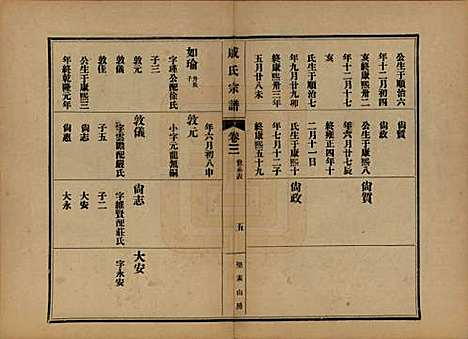 公生于順治六
年十二月初四
亥終康熙卅二
年十二月十七
亥
氏生于順治七
年九月廿九卯
終康熙卅
五月廿八未
尙質
公生于康熙八
年六月廿七辰
終雍正四年十
二月十一日
氏生于康熙十
年七月十二子
終康熙五十九
尙質
尙政
尙政
咸氏宗譜
卷三
世系表
五
如瑜
字瑾公配徐氏
子三
敦元
敦儀
敦佳
公生于康熙三
年終乾隆元年
年六月初八申
敦元
小字元龍無嗣
敦儀
字雲階配嚴氏
子五
尙志
尙惠
尙志
字維賢配莊氏
子二
大安
大永
大安
字永安